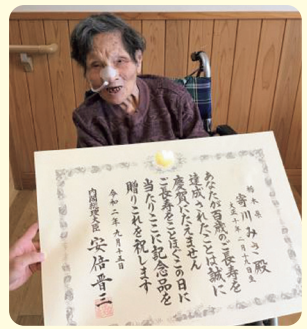 栃木県
寄川みさ殿
大正十年二月十八日生
あなたが百歳のご長寿を
達成されたことは誠に
慶賀にたえません
ご長寿をことほぐこの日に
当たりここに記念品を
贈りこれを祝します
令和二年九月十五日
内閣総理大臣 安倍晋三